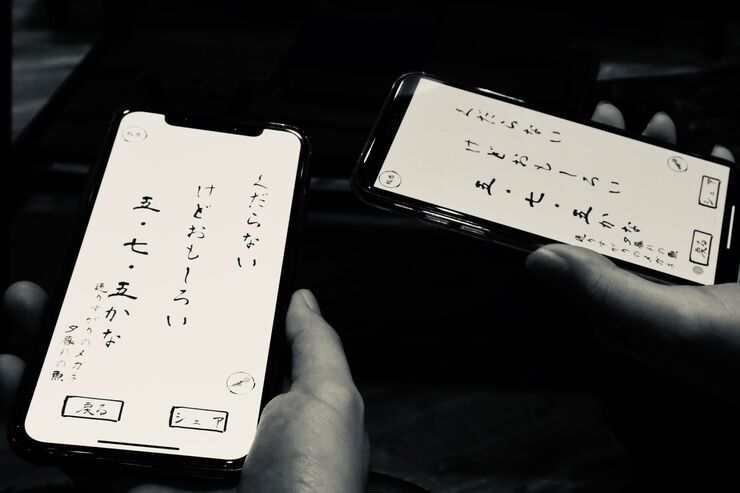 くだらない
けどおもしろい
五・七・五かな
通りすがりのメガネ
の魚
戻る
シェア
くだらない
けどおもしろい
五・七・五かな
通りすがりのメガネ
の魚
戻る
シェア